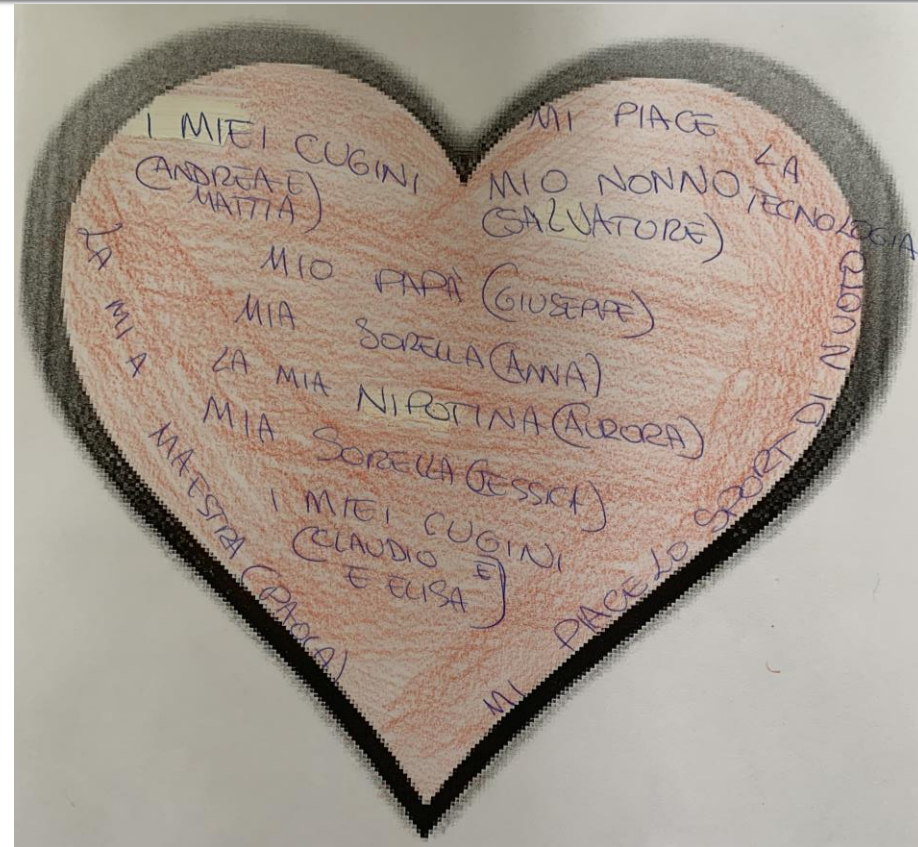 I MIEI CUGINI
(ANDREA E
MATTIA)
MI PIACE
LA
TECNOLOGIA
MIO NONNO
(SALVATORE)
MIO PAPÀ (GIUSEPPE)
MIA SORELLA (ANNA)
LA MIA NIPOTINA (AURORA)
MIA SORELLA (JESSICA)
I MIEI CUGINI
(CLAUDIO E
E ELISA)
LA MIA MAESTRA (PAOLA)
MI PIACE LO SPORT DI NUOTO